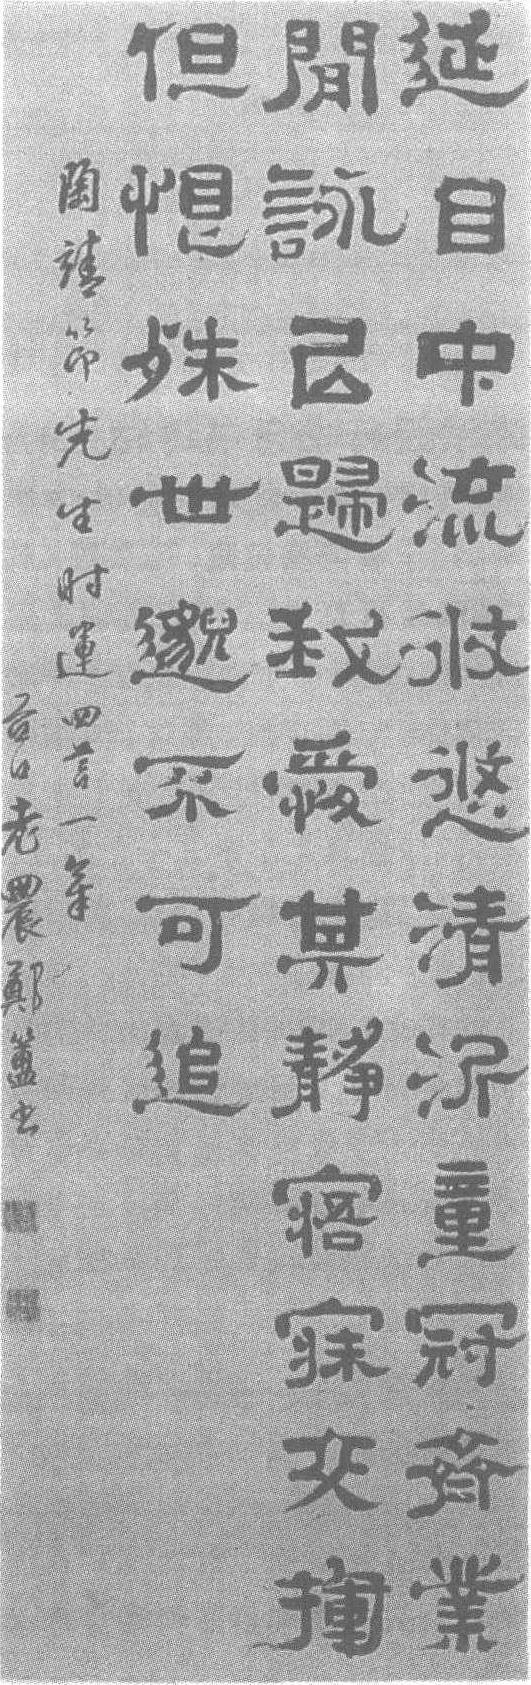 延目中流攸悠清沂童冠齊業
閒詠以歸我愛其靜寤寐交揮
但恨殊世邈不可追
陶靖節先生时運四言一章
谷口老農鄭簠书